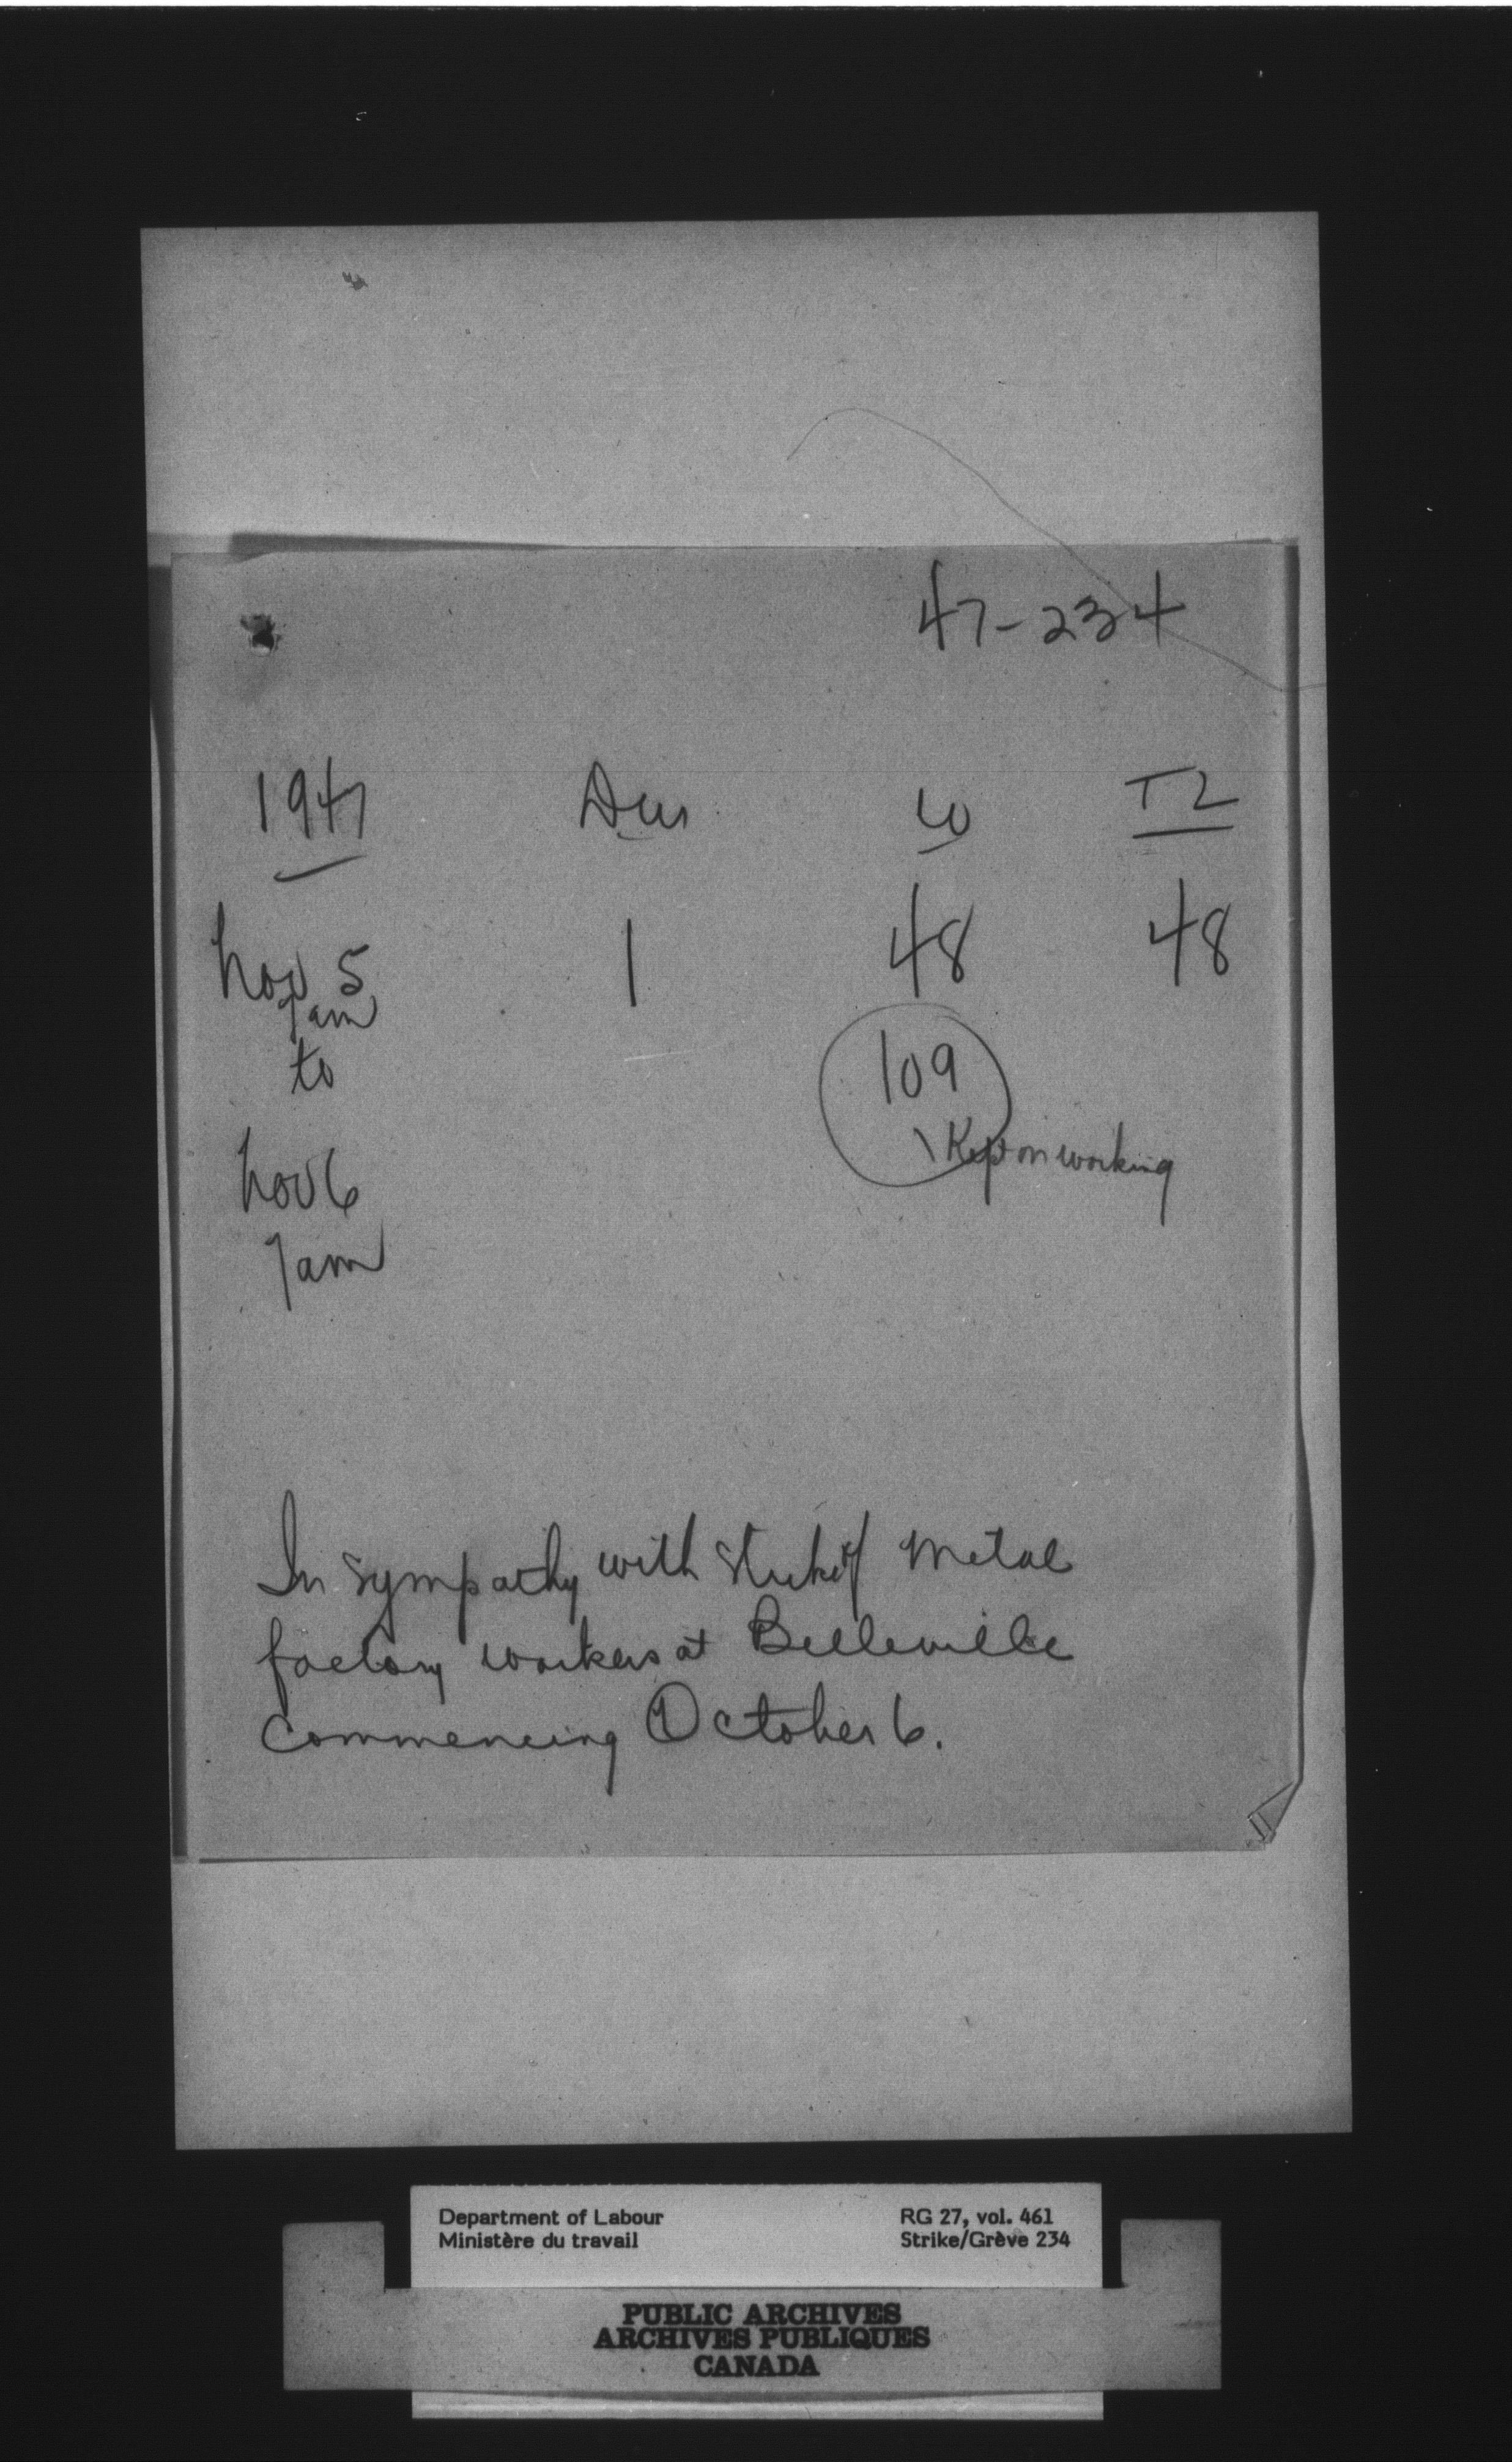 47-234
1947 Dur W TL
Nov 5 1 48 48
7am
to 109
Kept on working
Nov 6
7am
In sympathy with strike of metal
factory workers at Belleville
commencing October 6.
Department of Labour RG 27, vol. 461
Ministère du travail Strike/Grève 234
PUBLIC ARCHIVES
ARCHIVES PUBLIQUES
CANADA